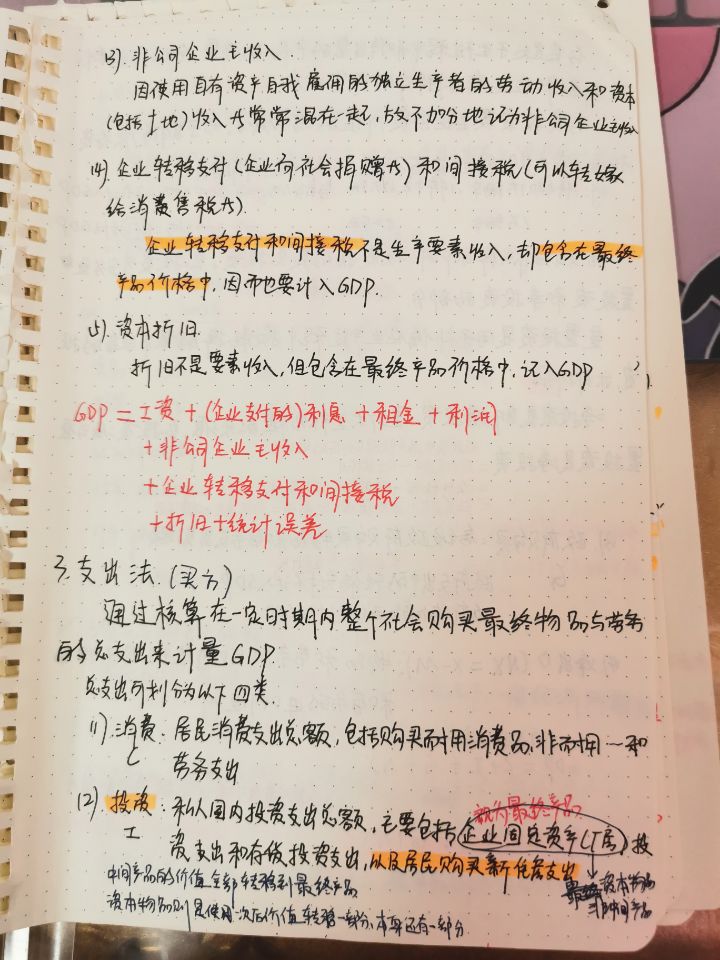 (3). 非公司企业主收入.
因使用自有资产自我雇佣的独立生产者的劳动收入和资本
(包括土地)收入常常混在一起, 故不加分地记为非公司企业主收
(4). 企业转移支付(企业向社会捐赠) 和间接税(可以转嫁
给消费售税).
企业转移支付和间接税不是生产要素收入, 却包含在最终
产品价格中, 因而也要计入GDP.
(5). 资本折旧.
折旧不是要素收入, 但包含在最终产品价格中, 记入GDP
GDP = 工资 + (企业支付的)利息 + 租金 + 利润
+ 非公司企业主收入
+ 企业转移支付和间接税
+ 折旧 + 统计误差
3. 支出法. (买方)
通过核算在一定时期内整个社会购买最终物品与劳务
的总支出来计量GDP.
总支出可划分为以下四类
(1). 消费: 居民消费支出总额, 包括购买耐用消费品, 非耐用一和
C 劳务支出
视为最终产品
(2). 投资: 私人国内投资支出总额, 主要包括企业固定资产(厂房)投
I 资支出和存货投资支出, 以及居民购买新住房支出
中间产品的价值全部转移到最终产品
资本物品
资本物品则是使用一次后价值转移一部分, 本身还有一部分.
非中间产品